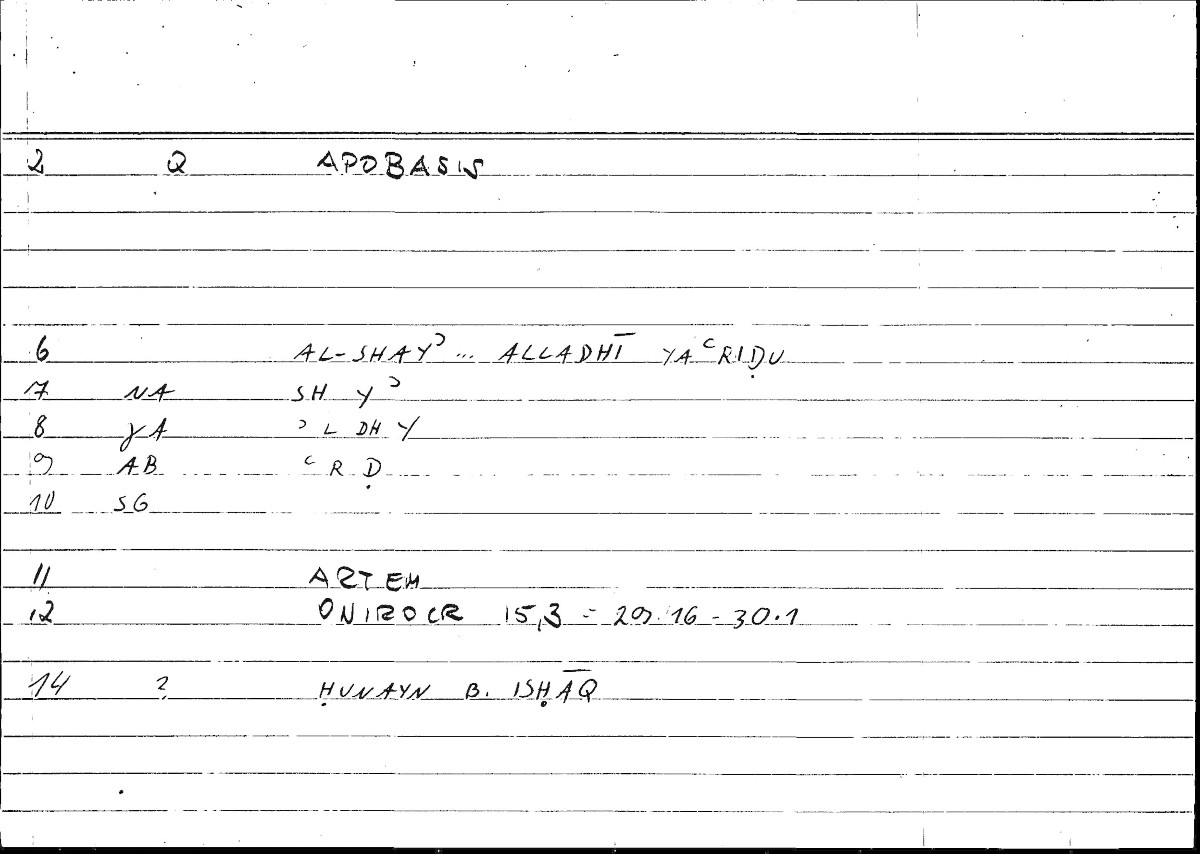 2 Q APOBASIS
6 AL-SHAYʾ ... ALLADHĪ YAʿRIḌU
7 NA SH Y ʾ
8 γA ʾ L DH Y
9 AB ʿ R Ḍ
10 SG
11 ARTEM
12 ONIROCR 15,3 = 29.16 - 30.1
14 ? ḤUNAYN B. ISḤĀQ